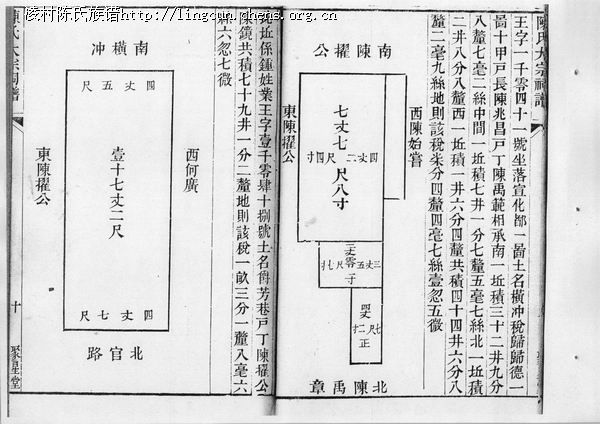 凌村陈氏族谱 http://lingcun.chens.org.cn
陳氏大宗祠譜
王字一千零四十一號坐落宣化都一啚土名橫冲稅歸歸德一
啚十甲戸長陳兆昌戸丁陳禹範相承南一坵積三十二井九分
八釐七毫二絲中間一坵積七井一分七釐五毫七絲北一坵積
二井八分八釐西一坵積一井六分四釐共積四十四井六分八
釐二毫九絲地則該稅柒分四釐四毫七絲壹忽五微
西陳始嘗
南陳擢公
四丈二尺四寸
七丈七尺八寸
東陳擢公
三丈五尺七寸
四丈二尺
七尺正
北陳禹章
一坵係鍾姓業王字壹千零肆十捌號土名爵芳巷戸丁陳擢公
陳鏡共積七十九井一分二釐地則該稅一畝三分一釐八毫六
絲六忽七微
西何廣
南橫冲
四丈五尺
壹十七丈二尺
四丈七尺
東陳擢公
北官路
陳氏大宗祠譜
十
聚星堂